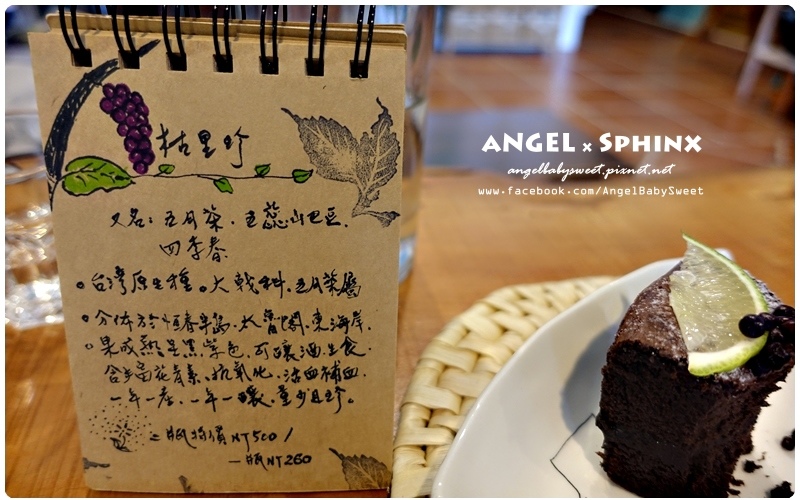 桔里珍
又名：五月茶．五蕊山巴豆．
四季春
台灣原生種。大戟科．五月茶屬
分佈於恒春半島．太魯閣．東海岸．
果成熟呈黑紫色．可釀酒．生食．
含豐富花青素、抗氧化、活血補血．
一年一產．一年一釀．量少且珍。
二瓶特價NT500/
一瓶NT260
ANGEL x SPHINX
angelbabysweet.pixnet.net
www.facebook.com/AngelBabySweet